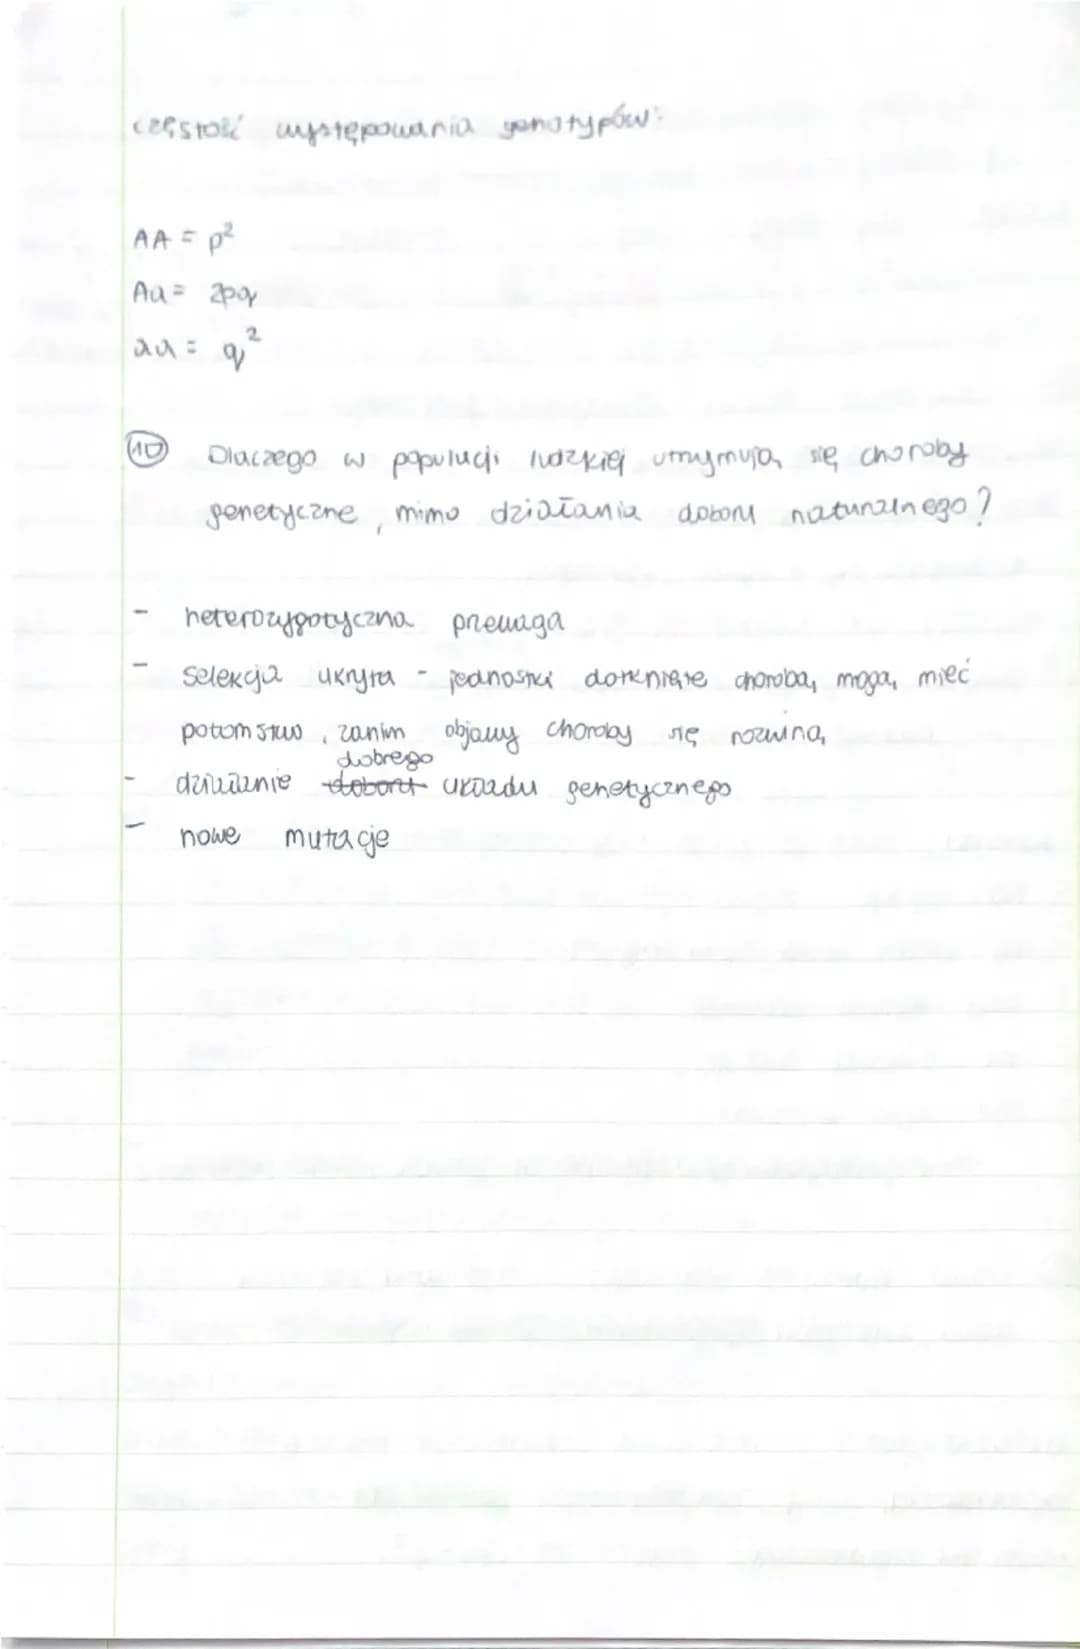 częstość występowania genotypów:
AA = p²
Aa = 2pq
aa = q²
10 Dlaczego w populacji ludzkiej utrzymują się choroby
genetyczne, mimo działania doboru naturalnego?
- heterozygotyczna przewaga
- selekcja ukryta - jednostki dotknięte chorobą, mogą mieć
potomstwo, zanim objawy choroby się rozwiną
dobrego
- działanie doboru układu genetycznego
- nowe mutacje